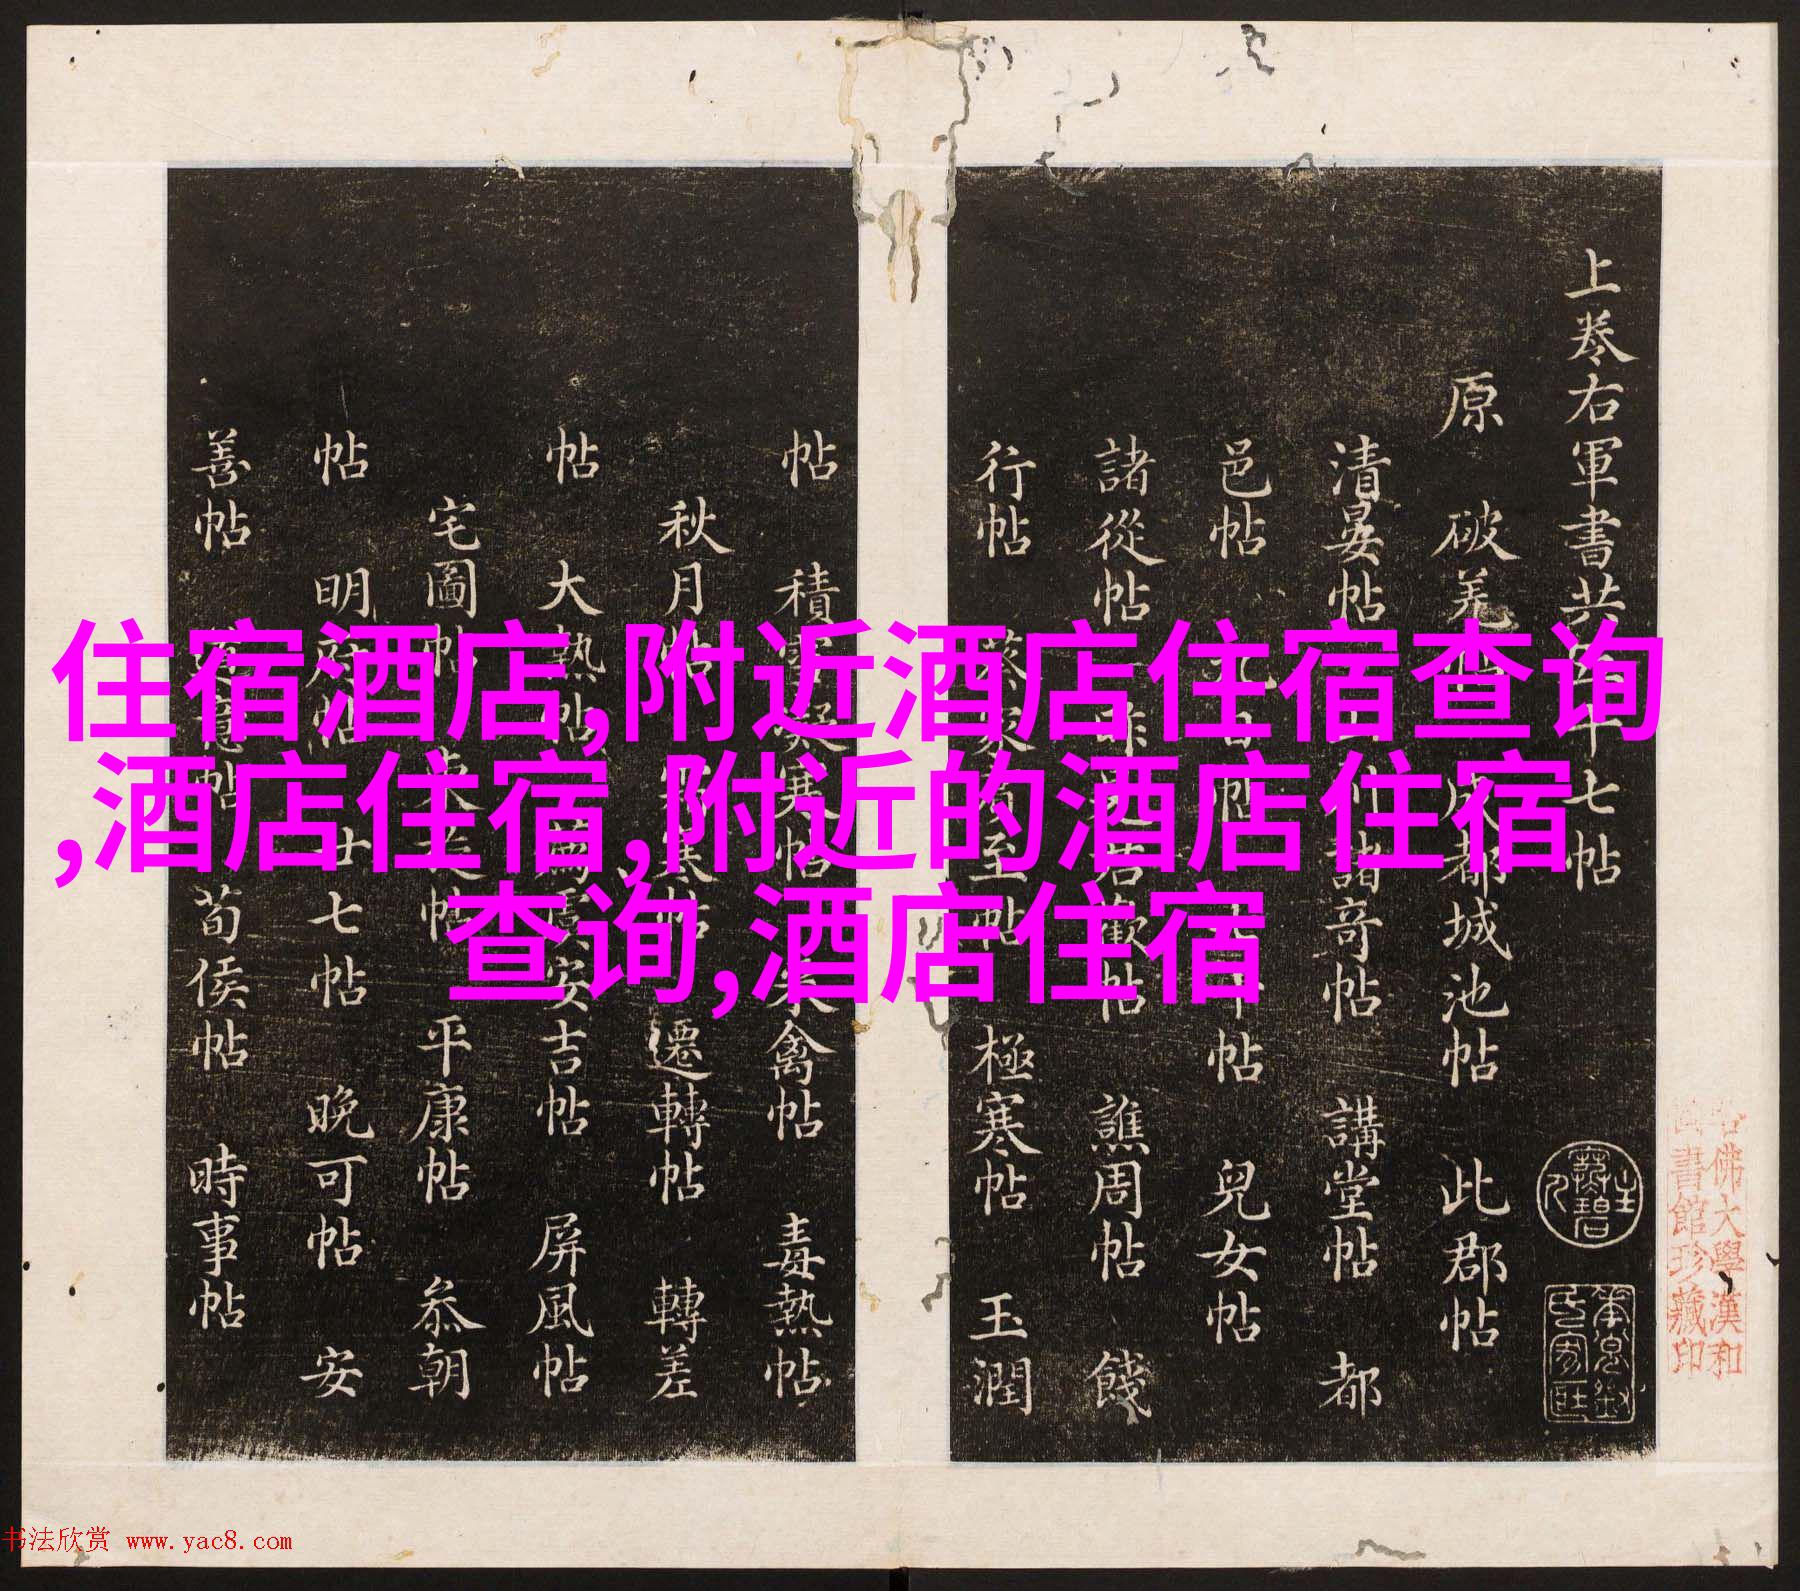 住宿酒店,附近酒店住宿查询
,酒店住宿,附近的酒店住宿
查询,酒店住宿
上卷右軍書共十七帖
原 破羌 成都城池帖 此郡帖
清晏帖 諸奇帖 講堂帖 都
邑帖 帖 兒女帖
諸從帖 帖 譙周帖 餞
行帖 至帖 極寒帖 玉潤
帖 積 寒帖 來禽帖 毒熱帖
秋月帖 帖 遷轉帖 轉差
帖 大熱帖 安吉帖 屏風帖
宅圖帖 帖 平康帖 叅朝
帖 明府帖 廿七帖 晚可帖 安
善帖 帖 荀侯帖 時事帖
佛大學漢和
書館珍藏印
书法欣赏 www.yac8.com